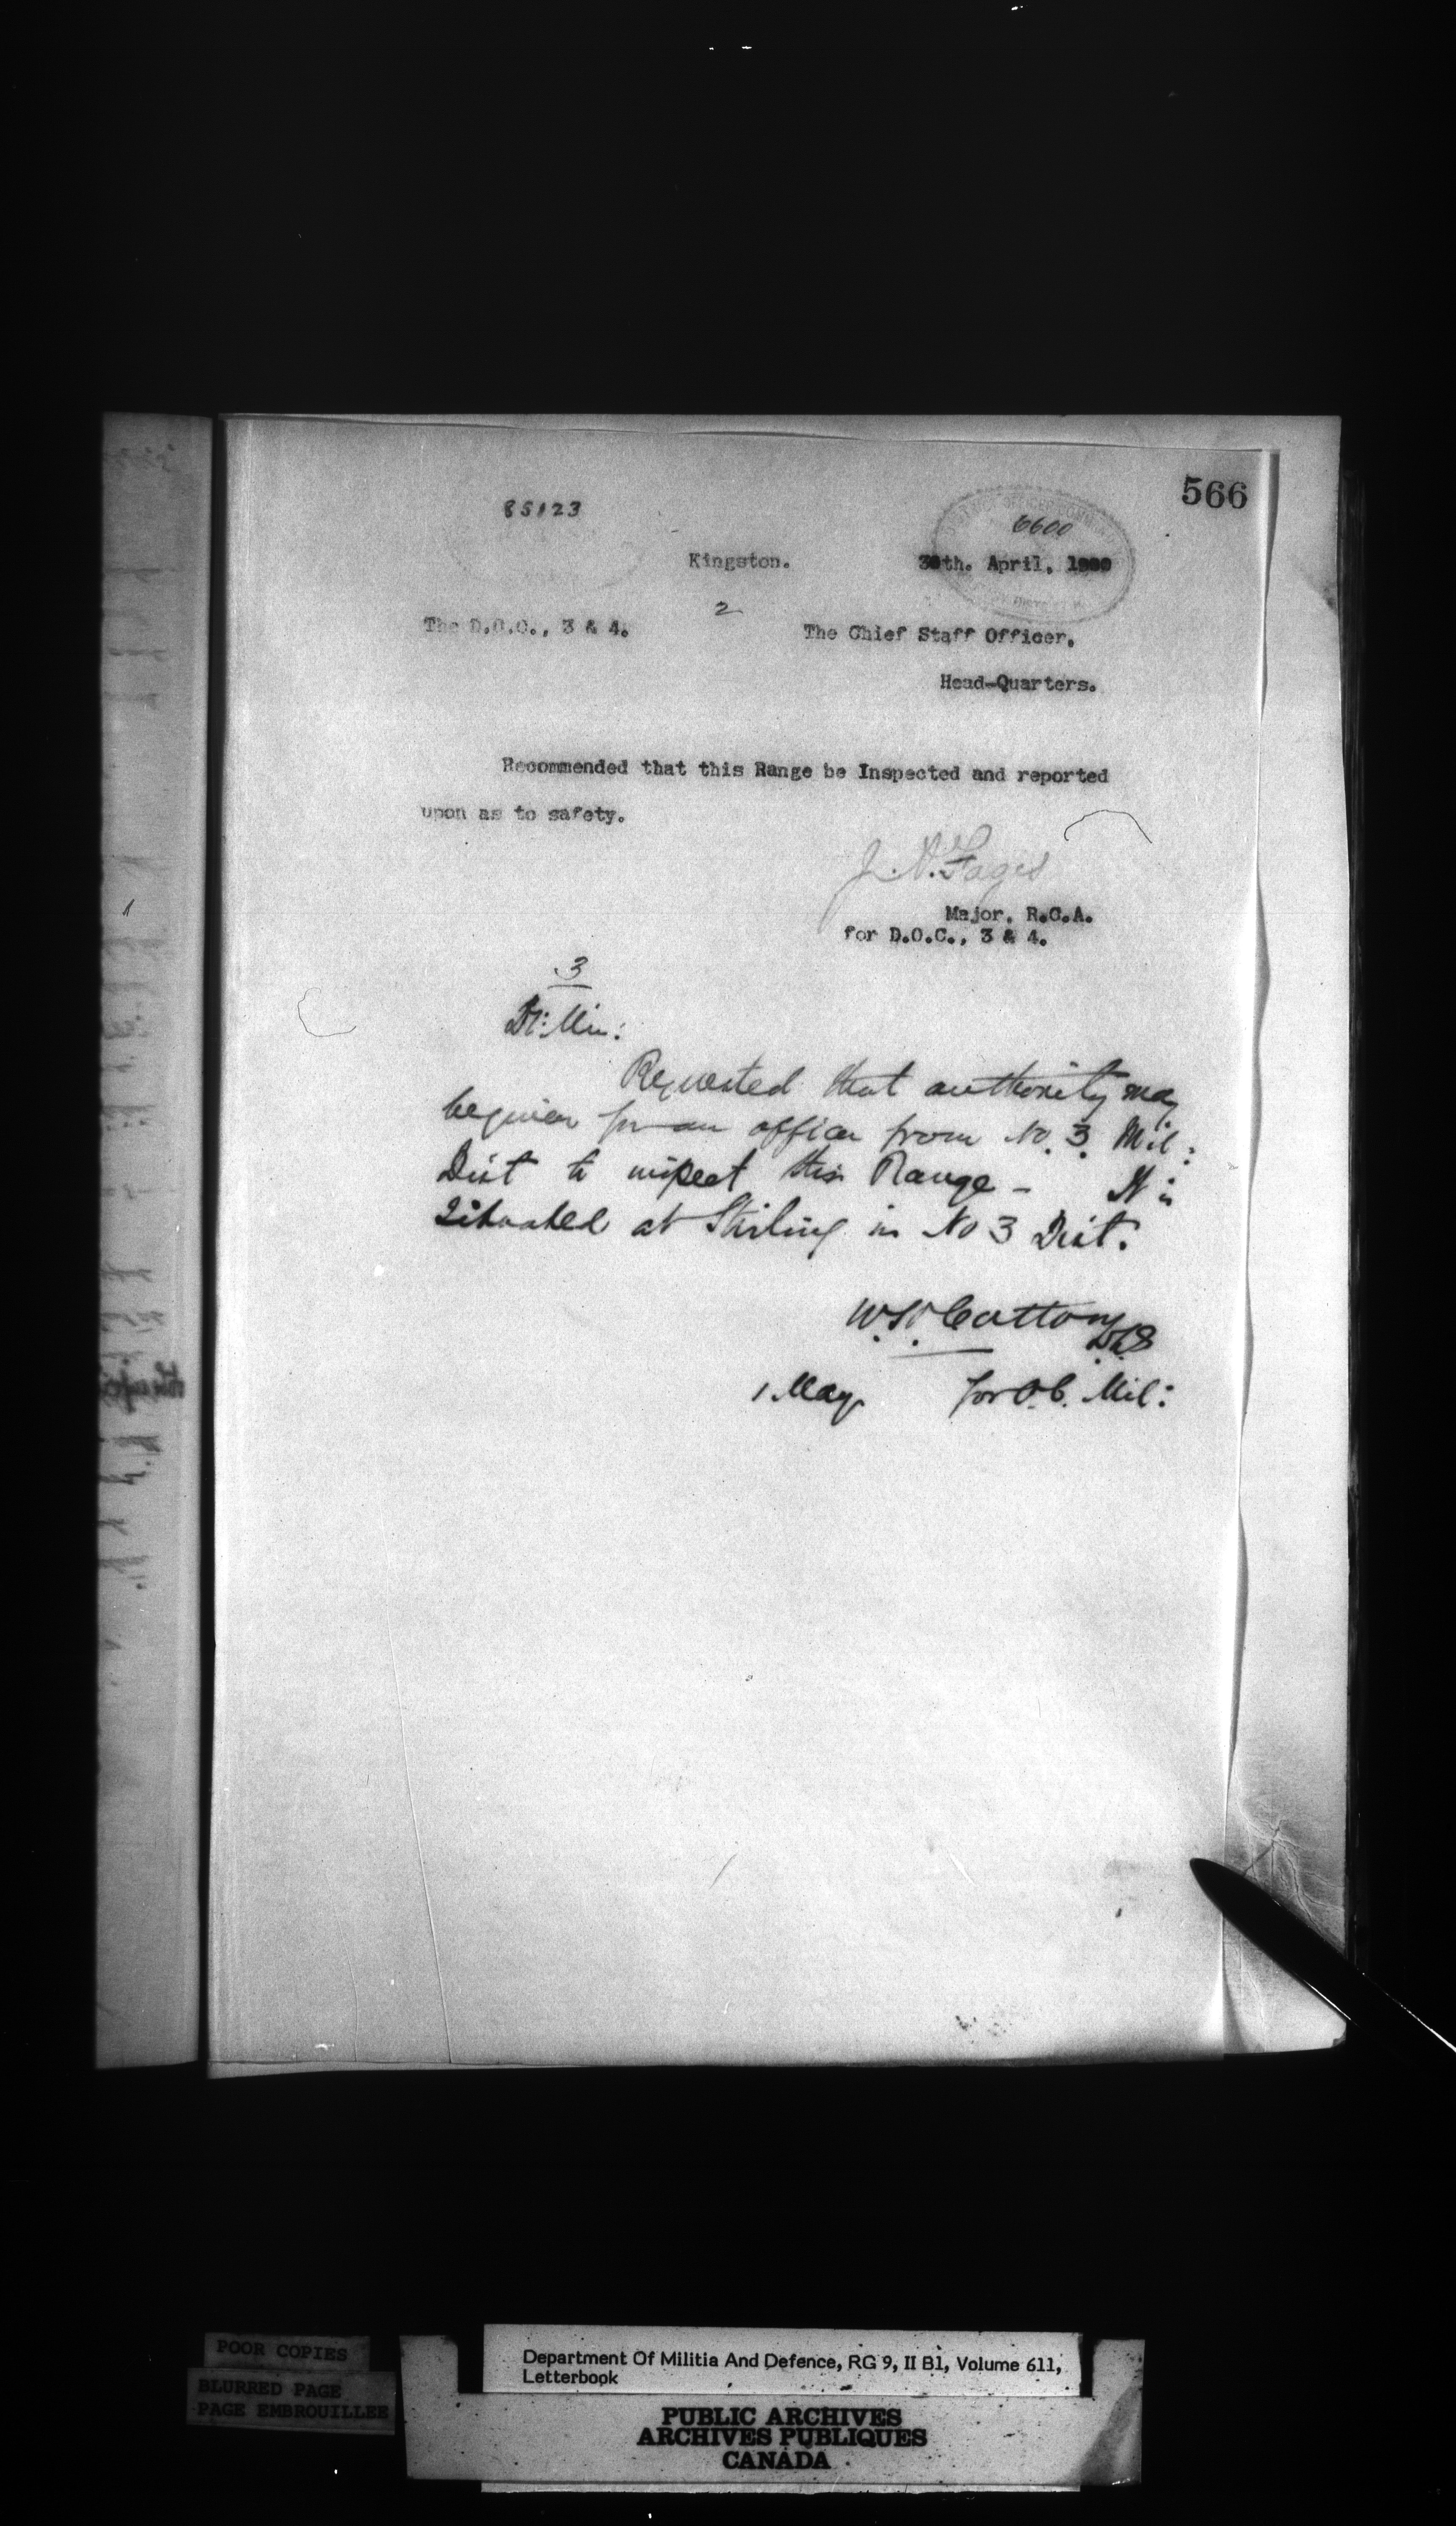 566
85123
6600
Kingston.
30th. April, 1900
2
The D.O.C., 3 & 4.
The Chief Staff Officer,
Head-Quarters.
Recommended that this Range be Inspected and reported
upon as to safety.
Major, R.C.A.
for D.O.C., 3 & 4.
3
Dt: Min:
Requested that authority may
be given for an officer from No. 3. Mil:
Dist to inspect this Range - It is
Situated at Stirling in No 3 Dist.
W.H. Cotton
1 May for O.C. Mil:
POOR COPIES
BLURRED PAGE
PAGE EMBROUILLEE
Department Of Militia And Defence, RG 9, II B1, Volume 611,
Letterbook
PUBLIC ARCHIVES
ARCHIVES PUBLIQUES
CANADA